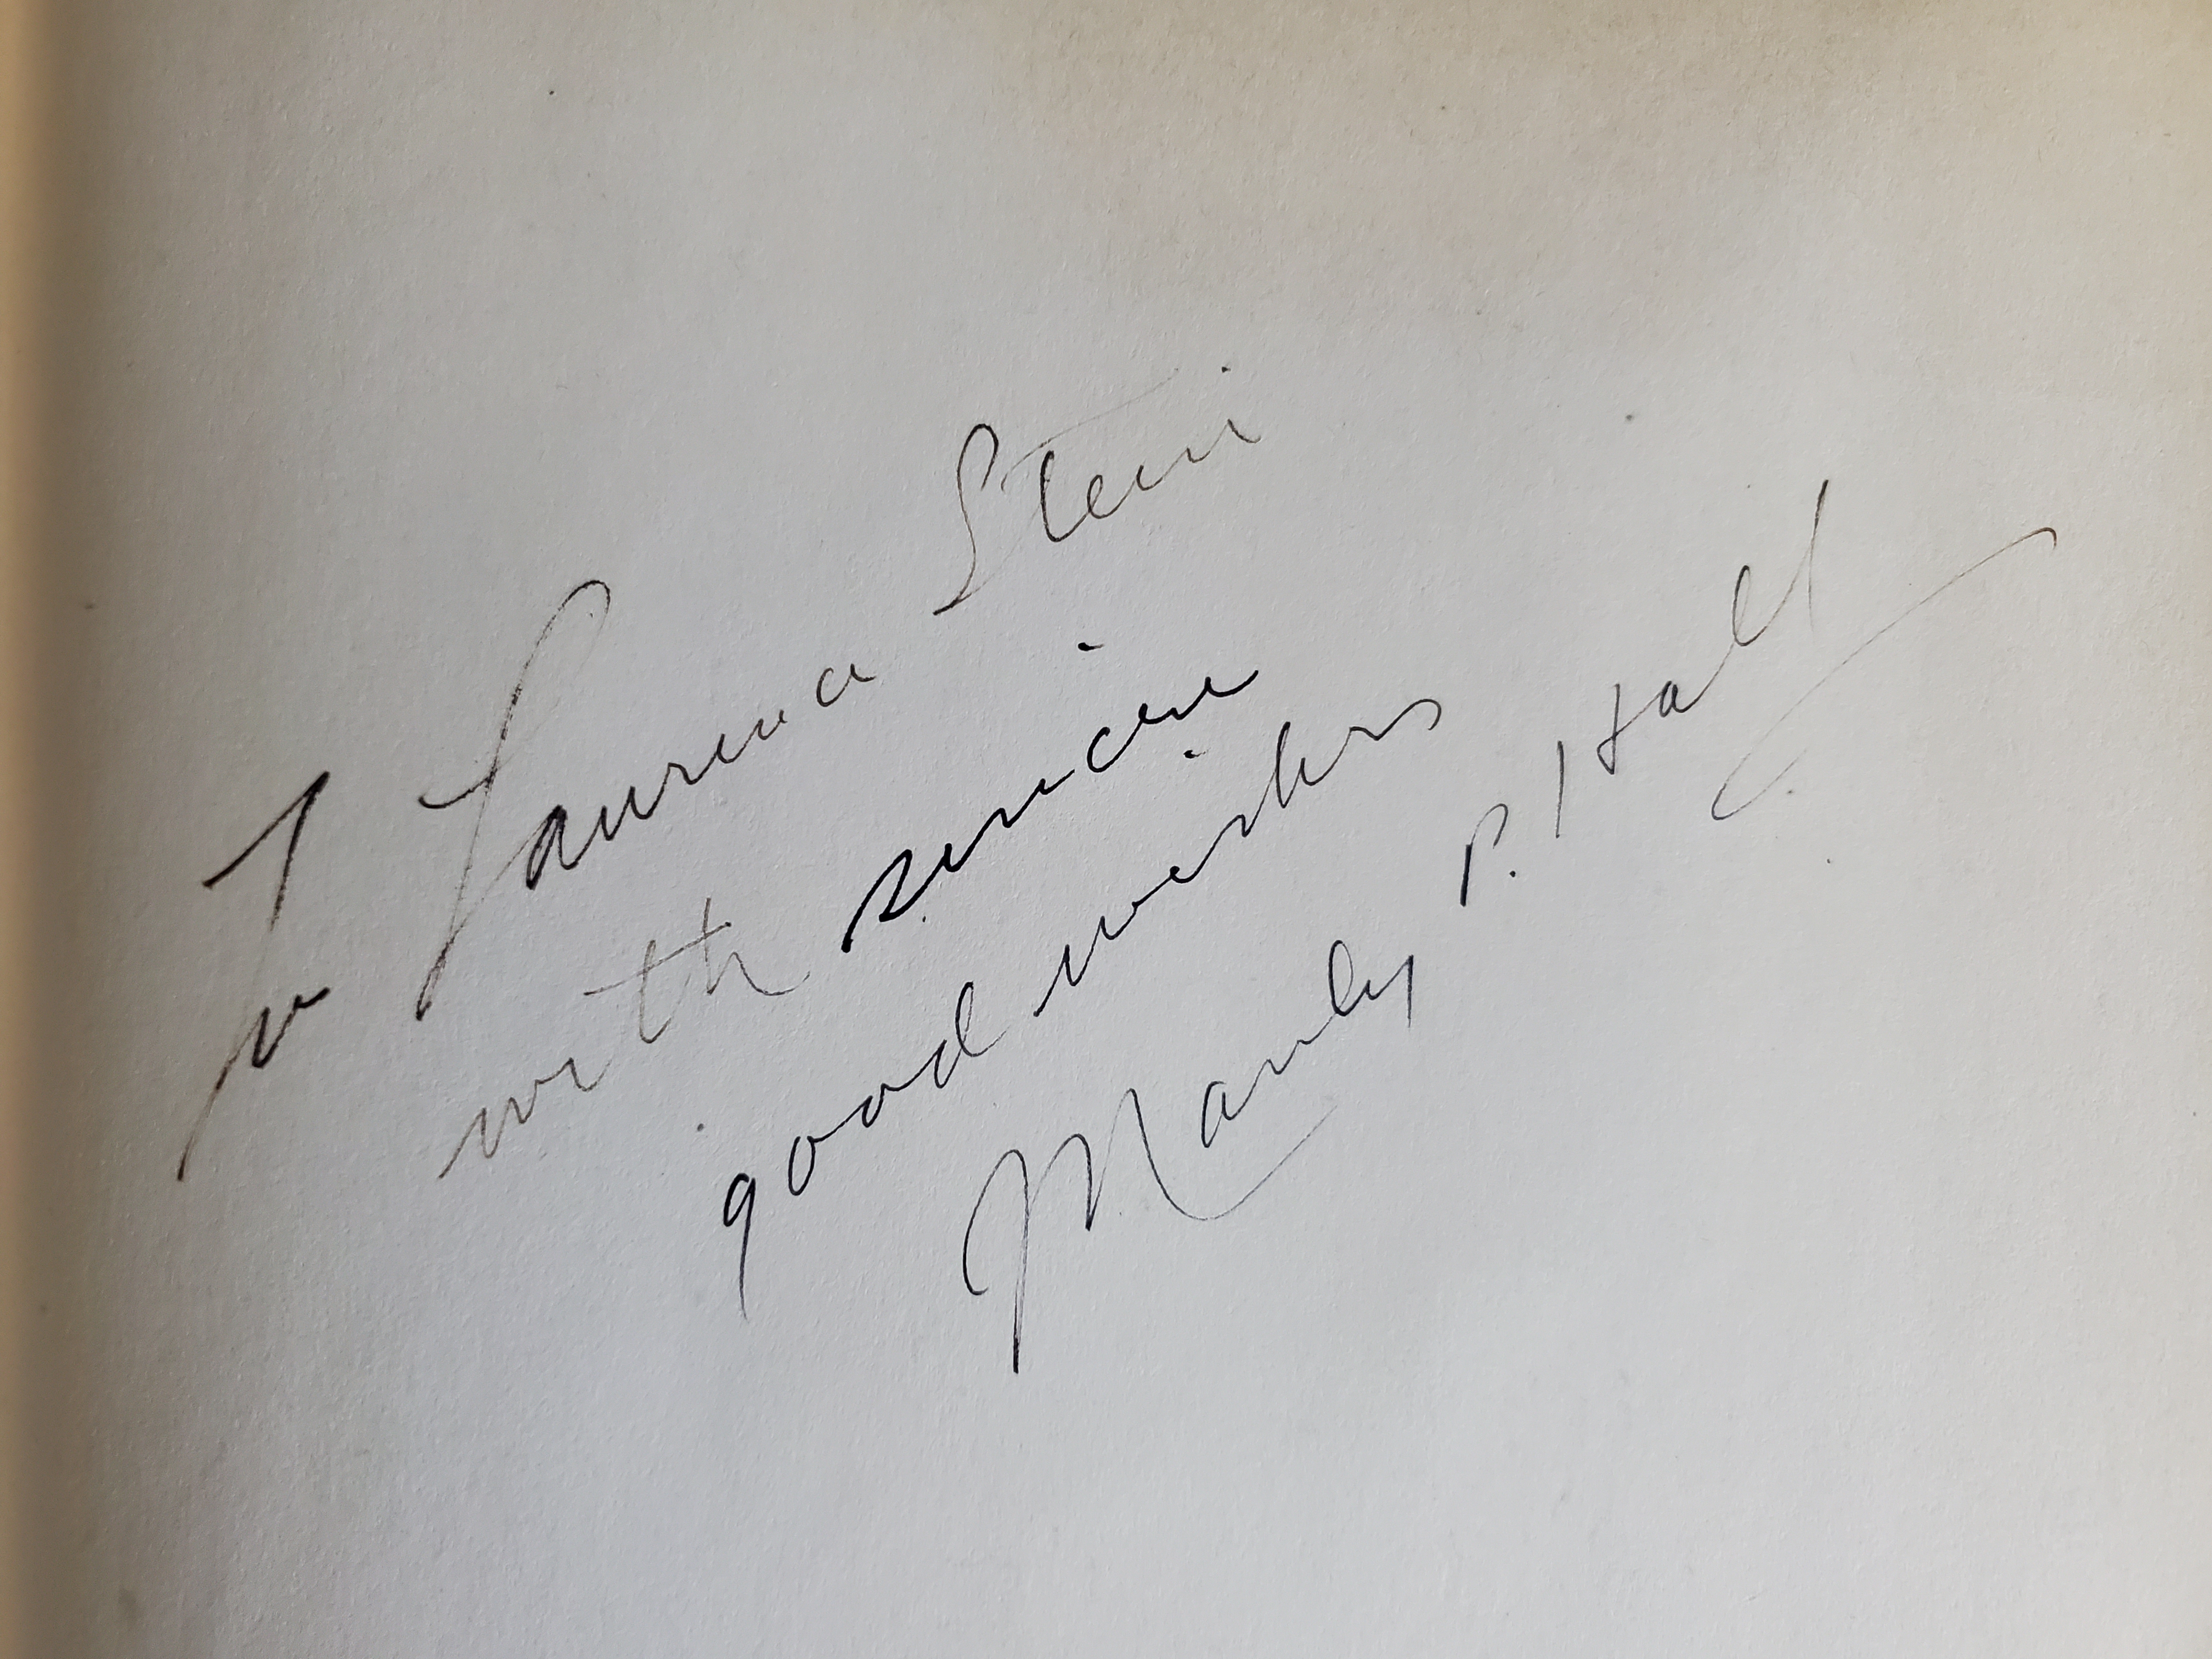 To Laurence Stein
with sincere
good wishes
Manly P. Hall